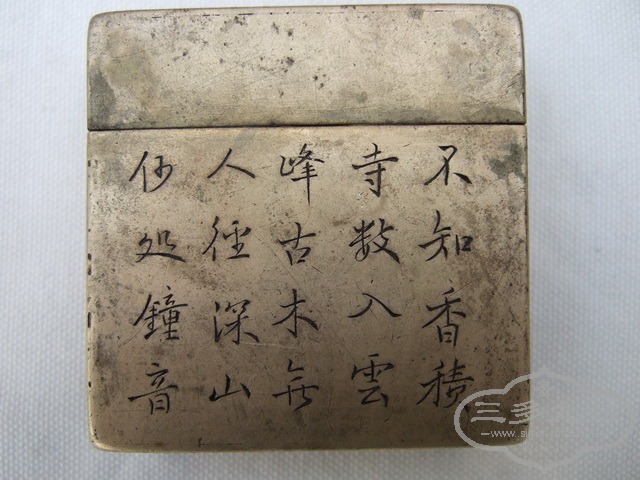 不知香積
寺数入雲
峰古木無
人徑深山
何処鐘音
三多